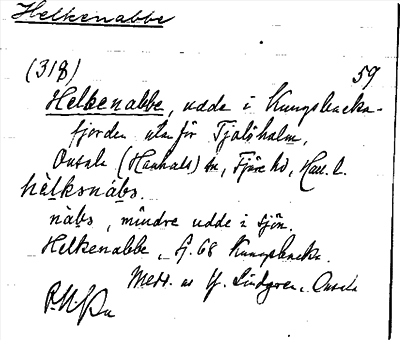 Helkenabbe
(318) 59
Helkenabbe, udde i Kungsbacka-
fjorden utanför Tjolöholm,
Onsala (Hanhals) sn, Fjäre hd, Hall. l.
hèlksnábs.
nàbs, mindre udde i sjön.
Helkenabbe, G. 68 Kungsbacka.
Medd. av Y. Lindgren, Onsala